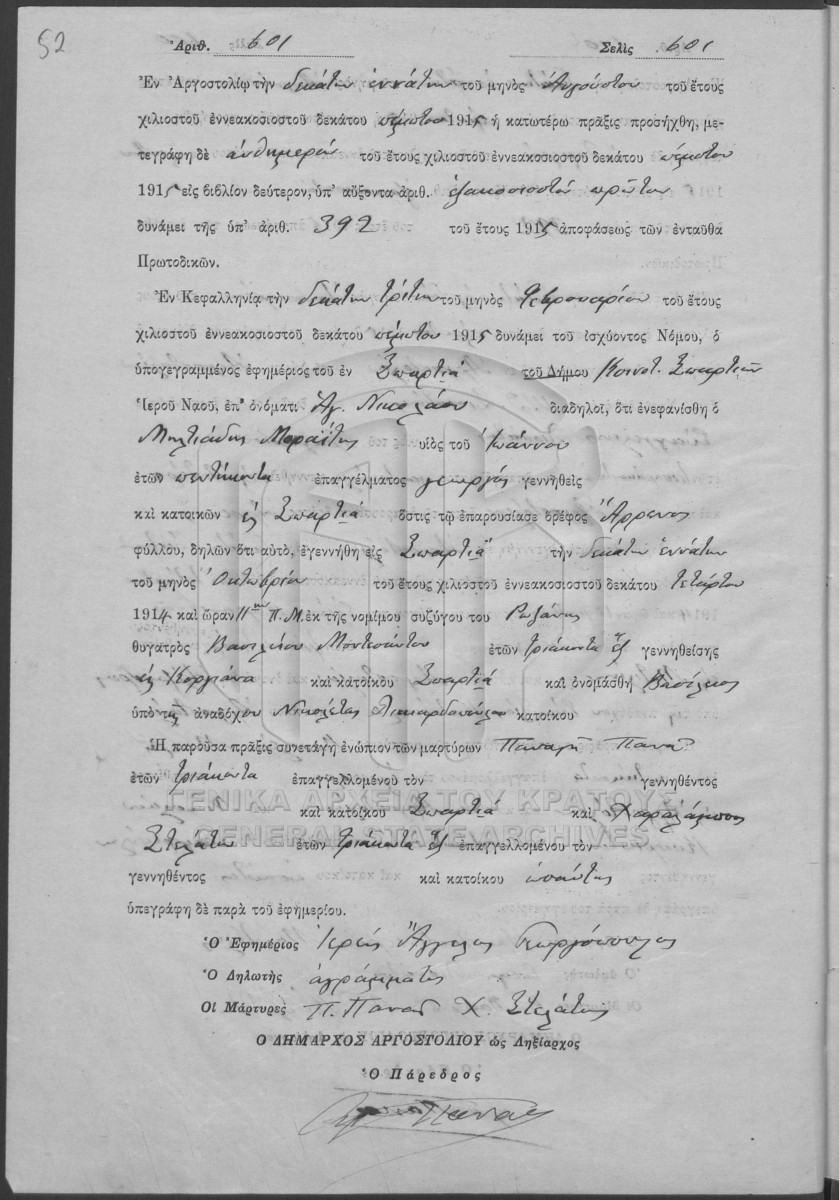 52
Ἀριθ. 601 Σελὶς 601
Ἐν Ἀργοστολίῳ τὴν δεκάτην ἐννάτην τοῦ μηνὸς Αὐγούστου τοῦ ἔτους
χιλιοστοῦ ἐννεακοσιοστοῦ δεκάτου πέμπτου 1915 ἡ κατωτέρω πρᾶξις προσήχθη, με-
τεγράφη δὲ αὐθημερόν τοῦ ἔτους χιλιοστοῦ ἐννεακοσιοστοῦ δεκάτου πέμπτου
1915 εἰς βιβλίον δεύτερον, ὑπ' αὔξοντα ἀριθ. ἑξακοσιοστόν πρῶτον
δυνάμει τῆς ὑπ' ἀριθ. 392 τοῦ ἔτους 1915 ἀποφάσεως τῶν ἐνταῦθα
Πρωτοδικῶν.
Ἐν Κεφαλληνίᾳ τὴν δεκάτην τρίτην τοῦ μηνὸς Φεβρουαρίου τοῦ ἔτους
χιλιοστοῦ ἐννεακοσιοστοῦ δεκάτου πέμπτου 1915 δυνάμει τοῦ ἰσχύοντος Νόμου, ὁ
ὑπογεγραμμένος ἐφημέριος τοῦ ἐν Σπαρτιά τοῦ Δήμου Κοινοτ. Σπαρτιῶν
Ἱεροῦ Ναοῦ, ἐπ' ὀνόματι Ἁγ. Νικολάου διαδηλοῖ, ὅτι ἐνεφανίσθη ὁ
Μιλτιάδης Μοραΐτης υἱὸς τοῦ Ἰωάννου
ἐτῶν πεντήκοντα ἐπαγγέλματος γεωργός γεννηθεὶς
καὶ κατοικῶν εἰς Σπαρτιά ὅστις τῷ ἐπαρουσίασε βρέφος Ἄρρενος
φύλλου, δηλῶν ὅτι αὐτὸ, ἐγεννήθη εἰς Σπαρτιά τὴν δεκάτην ἐννάτην
τοῦ μηνὸς Ὀκτωβρίου τοῦ ἔτους χιλιοστοῦ ἐννεακοσιοστοῦ δεκάτου τετάρτου
1914 καὶ ὥραν 11ην Π.Μ. ἐκ τῆς νομίμου συζύγου του Ροζάνης
θυγατρὸς Βασιλείου Μοντεσάντου ἐτῶν τριάκοντα ἕξ γεννηθείσης
εἰς Κοργιάνα καὶ κατοίκου Σπαρτιά καὶ ὀνομάσθη Βασίλειος
ὑπὸ τῆς ἀναδόχου Νικολέτας Λικιαρδοπούλου κατοίκου
Ἡ παροῦσα πρᾶξις συνετάγη ἐνώπιον τῶν μαρτύρων Παναγῆ Πανᾶ
ἐτῶν τριάκοντα ἐπαγγελλομένου τὸν γεννηθέντος
καὶ κατοίκου Σπαρτιά καὶ Χαραλάμπους
Στελάτου ἐτῶν τριάκοντα ἕξ ἐπαγγελλομένου τὸν
γεννηθέντος καὶ κατοίκου
ὑπεγράφη δὲ παρὰ τοῦ ἐφημερίου.
Ὁ Ἐφημέριος Ἱερεύς Ἄγγελος Γεωργόπουλος
Ὁ Δηλωτὴς ἀγράμματος
Οἱ Μάρτυρες Π. Πανᾶς Χ. Στελάτος
Ο ΔΗΜΑΡΧΟΣ ΑΡΓΟΣΤΟΛΙΟΥ ὡς Ληξίαρχος
Ὁ Πάρεδρος
ΓΕΝΙΚΑ ΑΡΧΕΙΑ ΤΟΥ ΚΡΑΤΟΥΣ
GENERAL STATE ARCHIVES